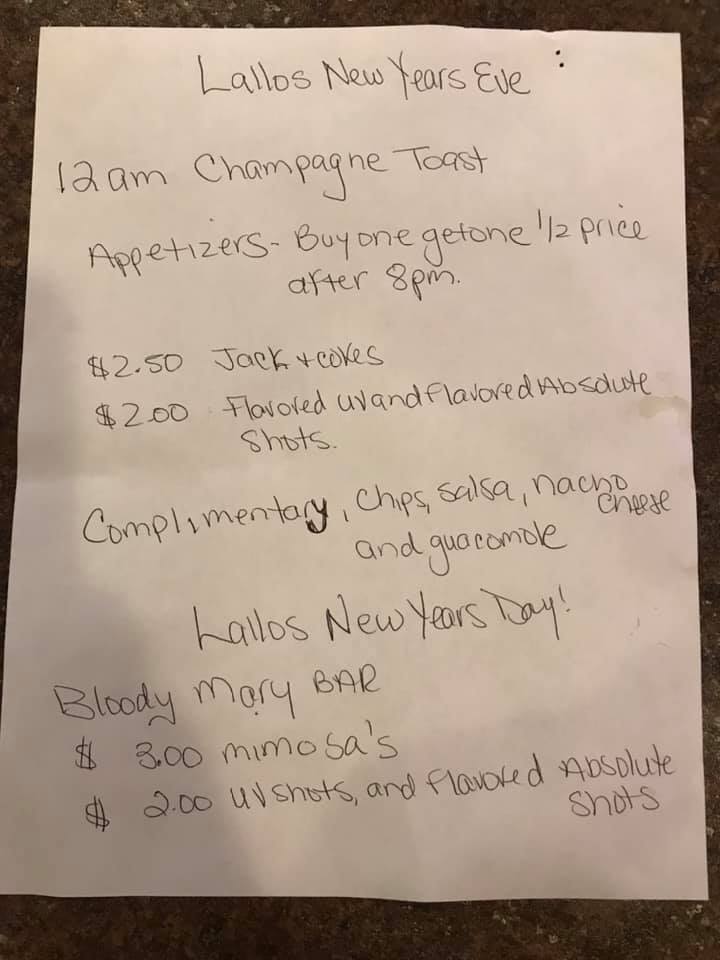 Lallos New Years Eve :
12am Champagne Toast
Appetizers- Buy one get one 1/2 price
after 8pm.
$2.50 Jack + cokes
$2.00 Flavored uv and flavored Absolute
Shots.
Complimentary, Chips, Salsa, nacho
Cheese
and guacomole
Lallos New Years Day!
Bloody Mary BAR
$ 3.00 mimosa's
$ 2.00 UV shots, and flavored Absolute
Shots